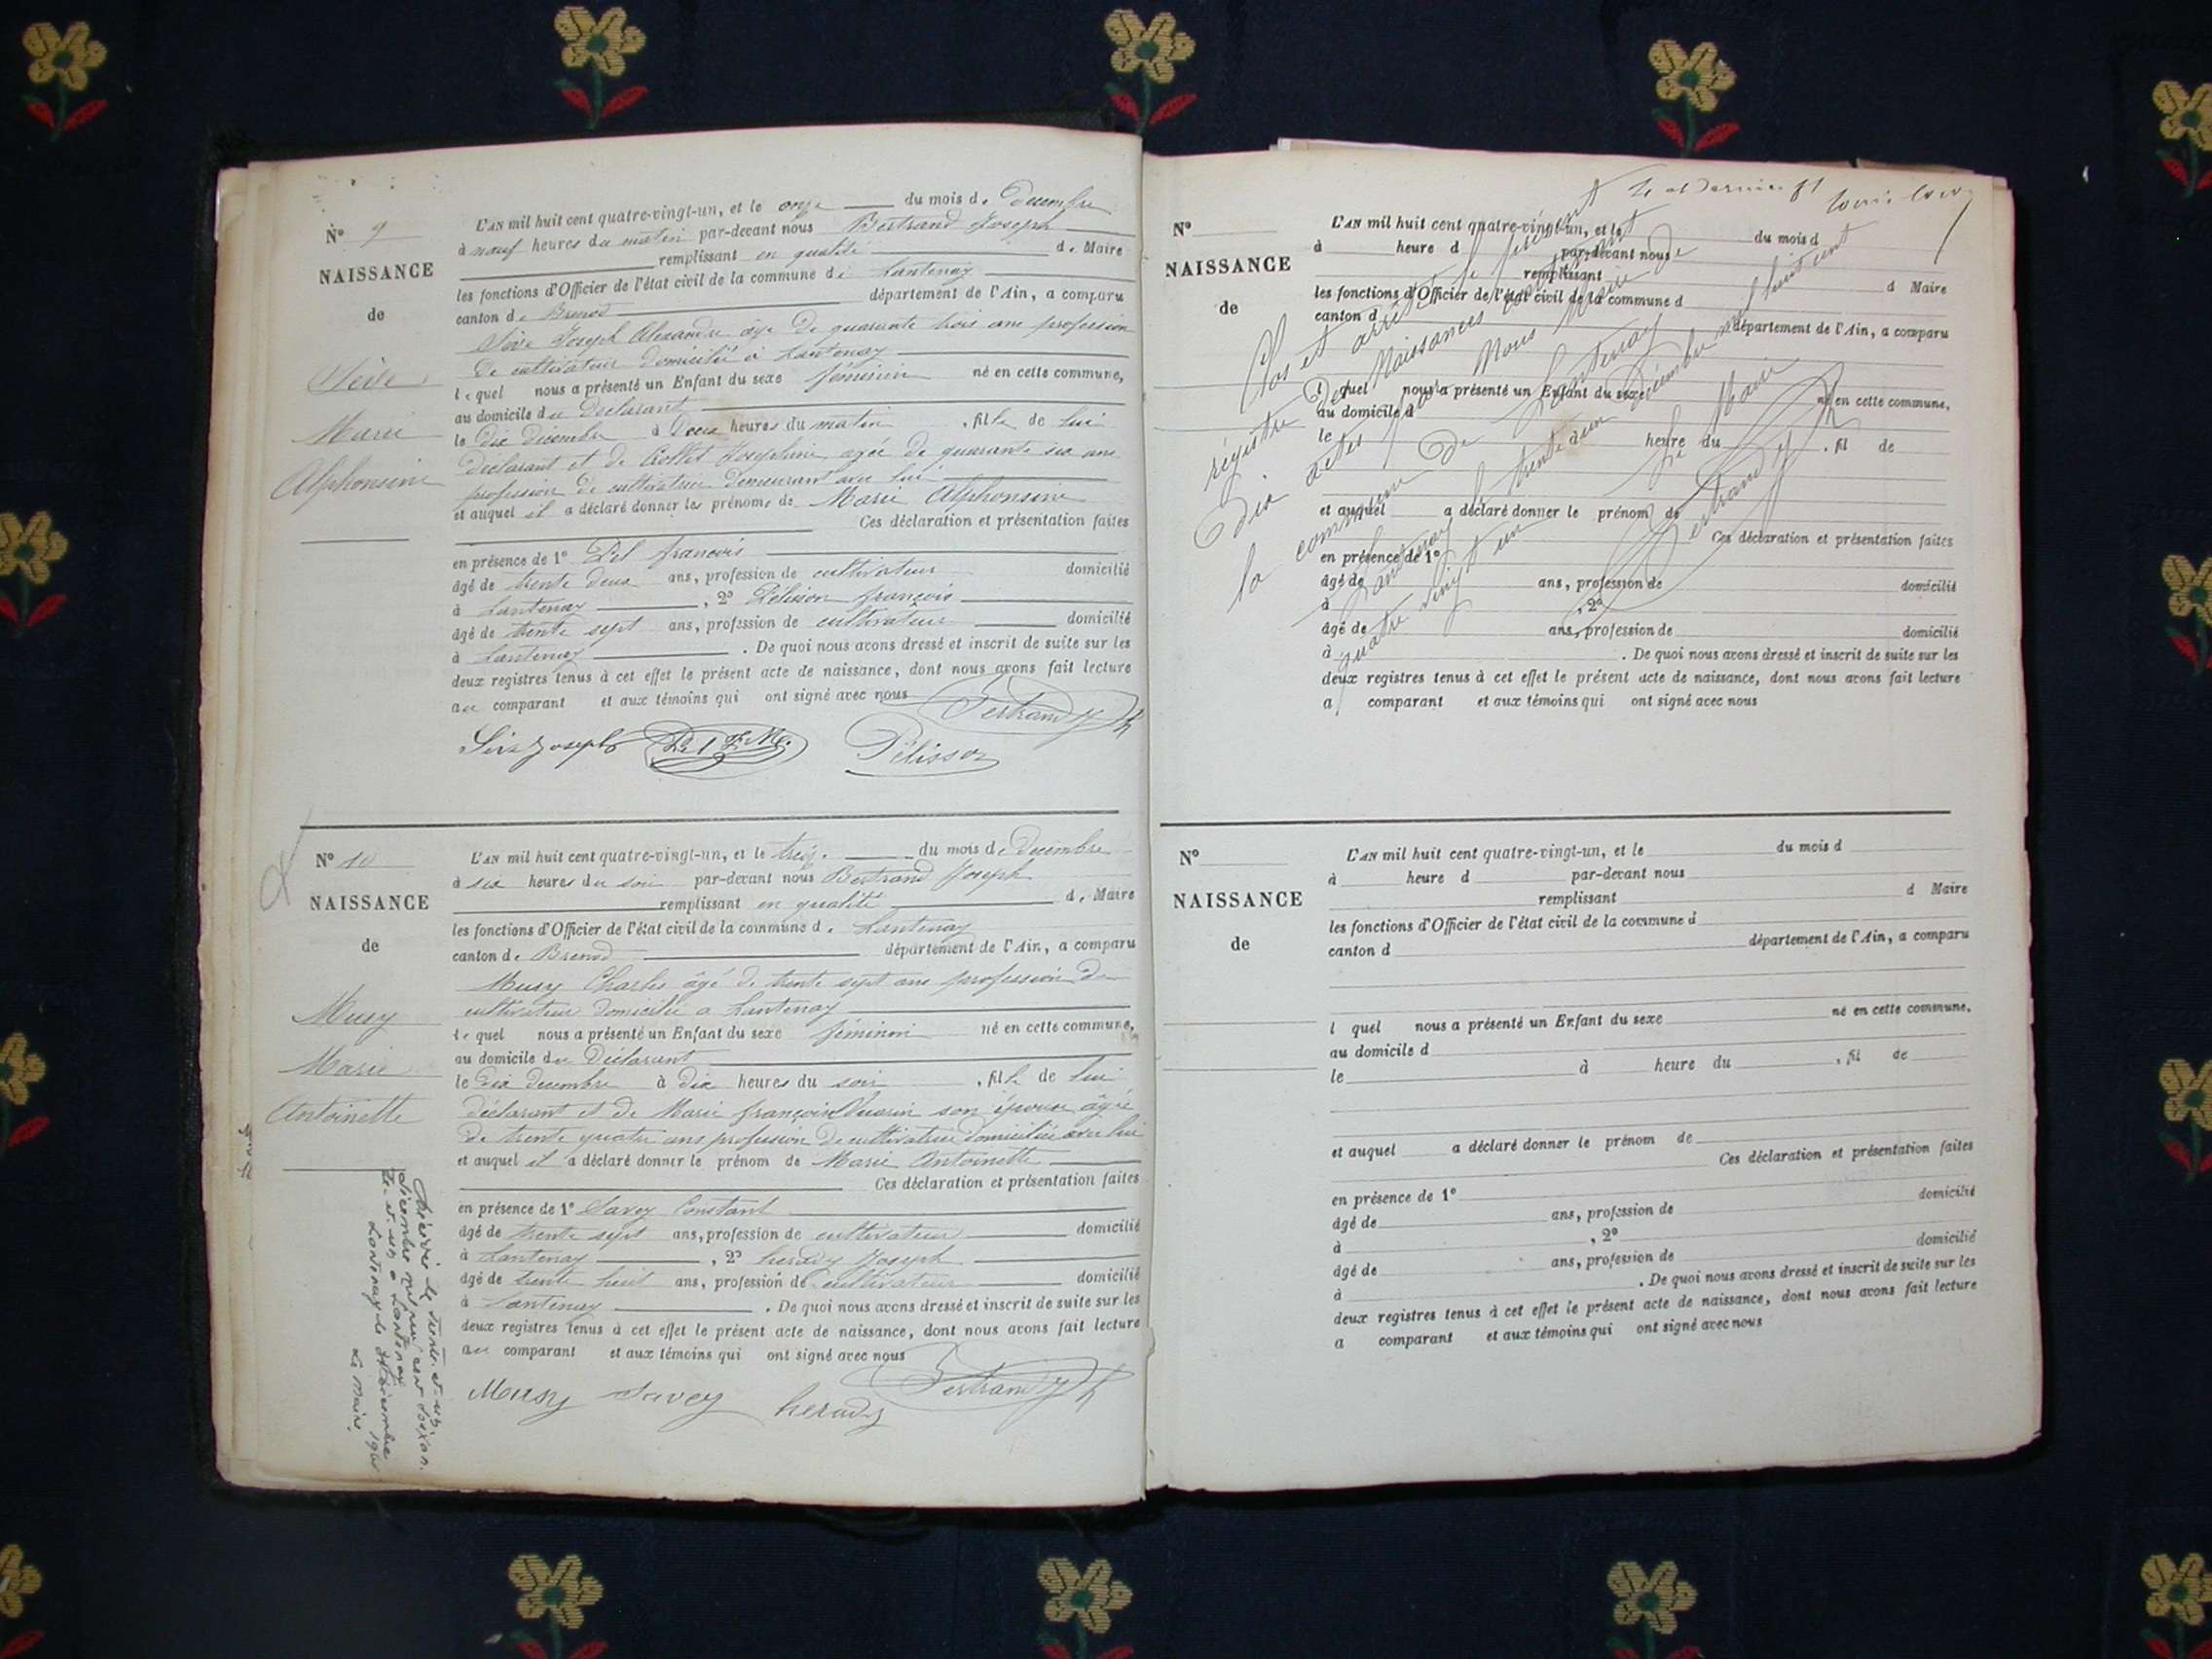 N° 9
NAISSANCE
de
Sève
Marie
Alphonsine
L'AN mil huit cent quatre-vingt-un, et le onze du mois de Décembre
à neuf heures du matin par-devant nous Bertrand Joseph
remplissant en qualité de Maire
les fonctions d'Officier de l'état civil de la commune de Lantenay
canton de Brenod département de l'Ain, a comparu
Sève Joseph Alexandre âgé de quarante trois ans profession
de cultivateur domicilié à Lantenay
lequel nous a présenté un Enfant du sexe féminin né en cette commune,
au domicile du Déclarant
le dix décembre à Deux heures du matin, fille de lui
déclarant et de Josephine agée de quarante six ans
profession de cultivatrice demeurant avec lui
et auquel il a déclaré donner les prénoms de Marie Alphonsine
Ces déclaration et présentation faites
en présence de 1° Pel françois
âgé de trente deux ans, profession de cultivateur domicilié
à Lantenay, 2° Pélisson françois
âgé de trente sept ans, profession de cultivateur domicilié
à Lantenay. De quoi nous avons dressé et inscrit de suite sur les
deux registres tenus à cet effet le présent acte de naissance, dont nous avons fait lecture
au comparant et aux témoins qui ont signé avec nous
Bertrand Jh
Sève Joseph Pélisson
N° 10
NAISSANCE
de
Musy
Marie
Antoinette
L'AN mil huit cent quatre-vingt-un, et le treize du mois de Décembre
à six heures du soir par-devant nous Bertrand Joseph
remplissant en qualité de Maire
les fonctions d'Officier de l'état civil de la commune de Lantenay
canton de Brenod département de l'Ain, a comparu
Musy Charles âgé de trente sept ans profession de
cultivateur domicilié a Lantenay
lequel nous a présenté un Enfant du sexe féminin né en cette commune,
au domicile du Déclarant
le dix décembre à dix heures du soir, fille de lui
déclarant et de Marie françoise son épouse âgée
de trente quatre ans profession de cultivatrice domiciliée avec lui
et auquel il a déclaré donner le prénom de Marie Antoinette
Ces déclaration et présentation faites
en présence de 1° Savey Constant
âgé de trente sept ans, profession de cultivateur domicilié
à Lantenay, 2° heraudy Joseph
âgé de trente huit ans, profession de cultivateur domicilié
à Lantenay. De quoi nous avons dressé et inscrit de suite sur les
deux registres tenus à cet effet le présent acte de naissance, dont nous avons fait lecture
au comparant et aux témoins qui ont signé avec nous
Bertrand Jh
Musy Savey
Lantenay le
Le Maire
N°
NAISSANCE
de
L'AN mil huit cent quatre-vingt-un, et le du mois d
à heure d par-devant nous
remplissant d Maire
les fonctions d'Officier de l'état civil de la commune d
canton d département de l'Ain, a comparu
l quel nous a présenté un Enfant du sexe né en cette commune,
au domicile d
le à heure du, fil de
et auquel a déclaré donner le prénom de
Ces déclaration et présentation faites
en présence de 1°
âgé de ans, profession de domicilié
à, 2°
âgé de ans, profession de domicilié
à. De quoi nous avons dressé et inscrit de suite sur les
deux registres tenus à cet effet le présent acte de naissance, dont nous avons fait lecture
a comparant et aux témoins qui ont signé avec nous
Clos et arrêté le présent
régistre de Naissances contenant
dix actes par Nous Maire de
la commune de Lantenay
Lantenay le trente un décembre mil huit cent
quatre vingt un
Le Maire
Bertrand Jh
N°
NAISSANCE
de
L'AN mil huit cent quatre-vingt-un, et le du mois d
à heure d par-devant nous
remplissant d Maire
les fonctions d'Officier de l'état civil de la commune d
canton d département de l'Ain, a comparu
l quel nous a présenté un Enfant du sexe né en cette commune,
au domicile d
le à heure du, fil de
et auquel a déclaré donner le prénom de
Ces déclaration et présentation faites
en présence de 1°
âgé de ans, profession de domicilié
à, 2°
âgé de ans, profession de domicilié
à. De quoi nous avons dressé et inscrit de suite sur les
deux registres tenus à cet effet le présent acte de naissance, dont nous avons fait lecture
a comparant et aux témoins qui ont signé avec nous